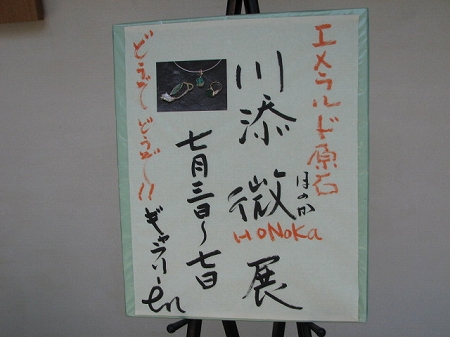 エメラルド原石
川添 微 展
ほのか
HONOKa
七月三日〜七日
ギャラリーen
どうぞーどうぞー!!